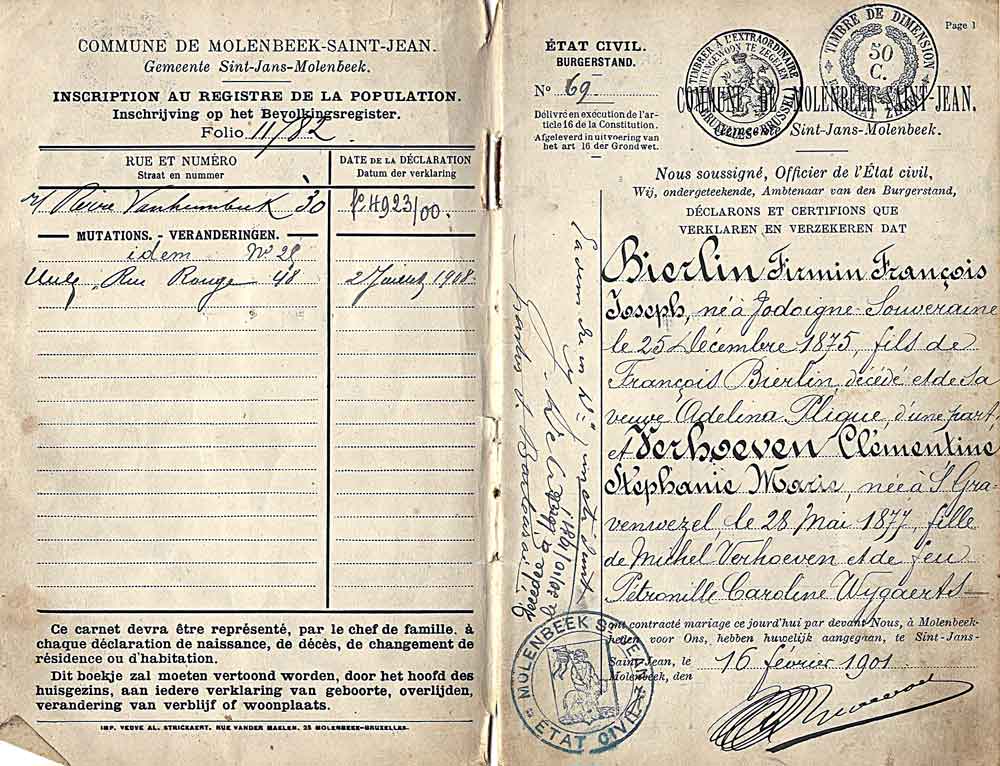 COMMUNE DE MOLENBEEK-SAINT-JEAN.
Gemeente Sint-Jans-Molenbeek.
INSCRIPTION AU REGISTRE DE LA POPULATION.
Inschrijving op het Bevolkingsregister.
Folio 11/82
RUE ET NUMÉRO
Straat en nummer
DATE DE LA DÉCLARATION
Datum der verklaring
30 4923/00.
MUTATIONS. - VERANDERINGEN.
idem No 28
Rue Rouge 48 2 Juillet 1908
Ce carnet devra être représenté, par le chef de famille, à
chaque déclaration de naissance, de décès, de changement de
résidence ou d'habitation.
Dit boekje zal moeten vertoond worden, door het hoofd des
huisgezins, aan iedere verklaring van geboorte, overlijden,
verandering van verblijf of woonplaats.
IMP. VEUVE AL. STRICKAERT. RUE VANDER MAELEN, 25 MOLENBEEK-BRUXELLES.
Page 1
ÉTAT CIVIL.
BURGERSTAND.
No 69
Délivré en exécution de l'ar-
ticle 16 de la Constitution.
Afgeleverd in uitvoering van
het art 16 der Grondwet.
TIMBRE DE DIMENSION
50
C.
COMMUNE DE MOLENBEEK-SAINT-JEAN.
Gemeente Sint-Jans-Molenbeek.
Nous soussigné, Officier de l'État civil,
Wij, ondergeteekende, Ambtenaar van den Burgerstand,
DÉCLARONS ET CERTIFIONS QUE
VERKLAREN EN VERZEKEREN DAT
Bierlin Firmin François
Joseph, né à Jodoigne-Souveraine
le 25 décembre 1875, fils de
François Bierlin, décédé et de sa
veuve Adelina Plique, d'une part,
et Verhoeven Clémentine
Stéphanie Marie, née à S'Gra-
venwezel, le 28 Mai 1877, fille
de Michel Verhoeven et de feu
Pétronille Caroline Wygaerts
ont contracté mariage ce jourd'hui par devant Nous, à Molenbeek-
hebben voor Ons, hebben huwelijk aangegaan, te Sint-Jans-
Saint-Jean, le 16 février 1901
Molenbeek, den
MOLENBEEK ST JEAN
ÉTAT CIVIL